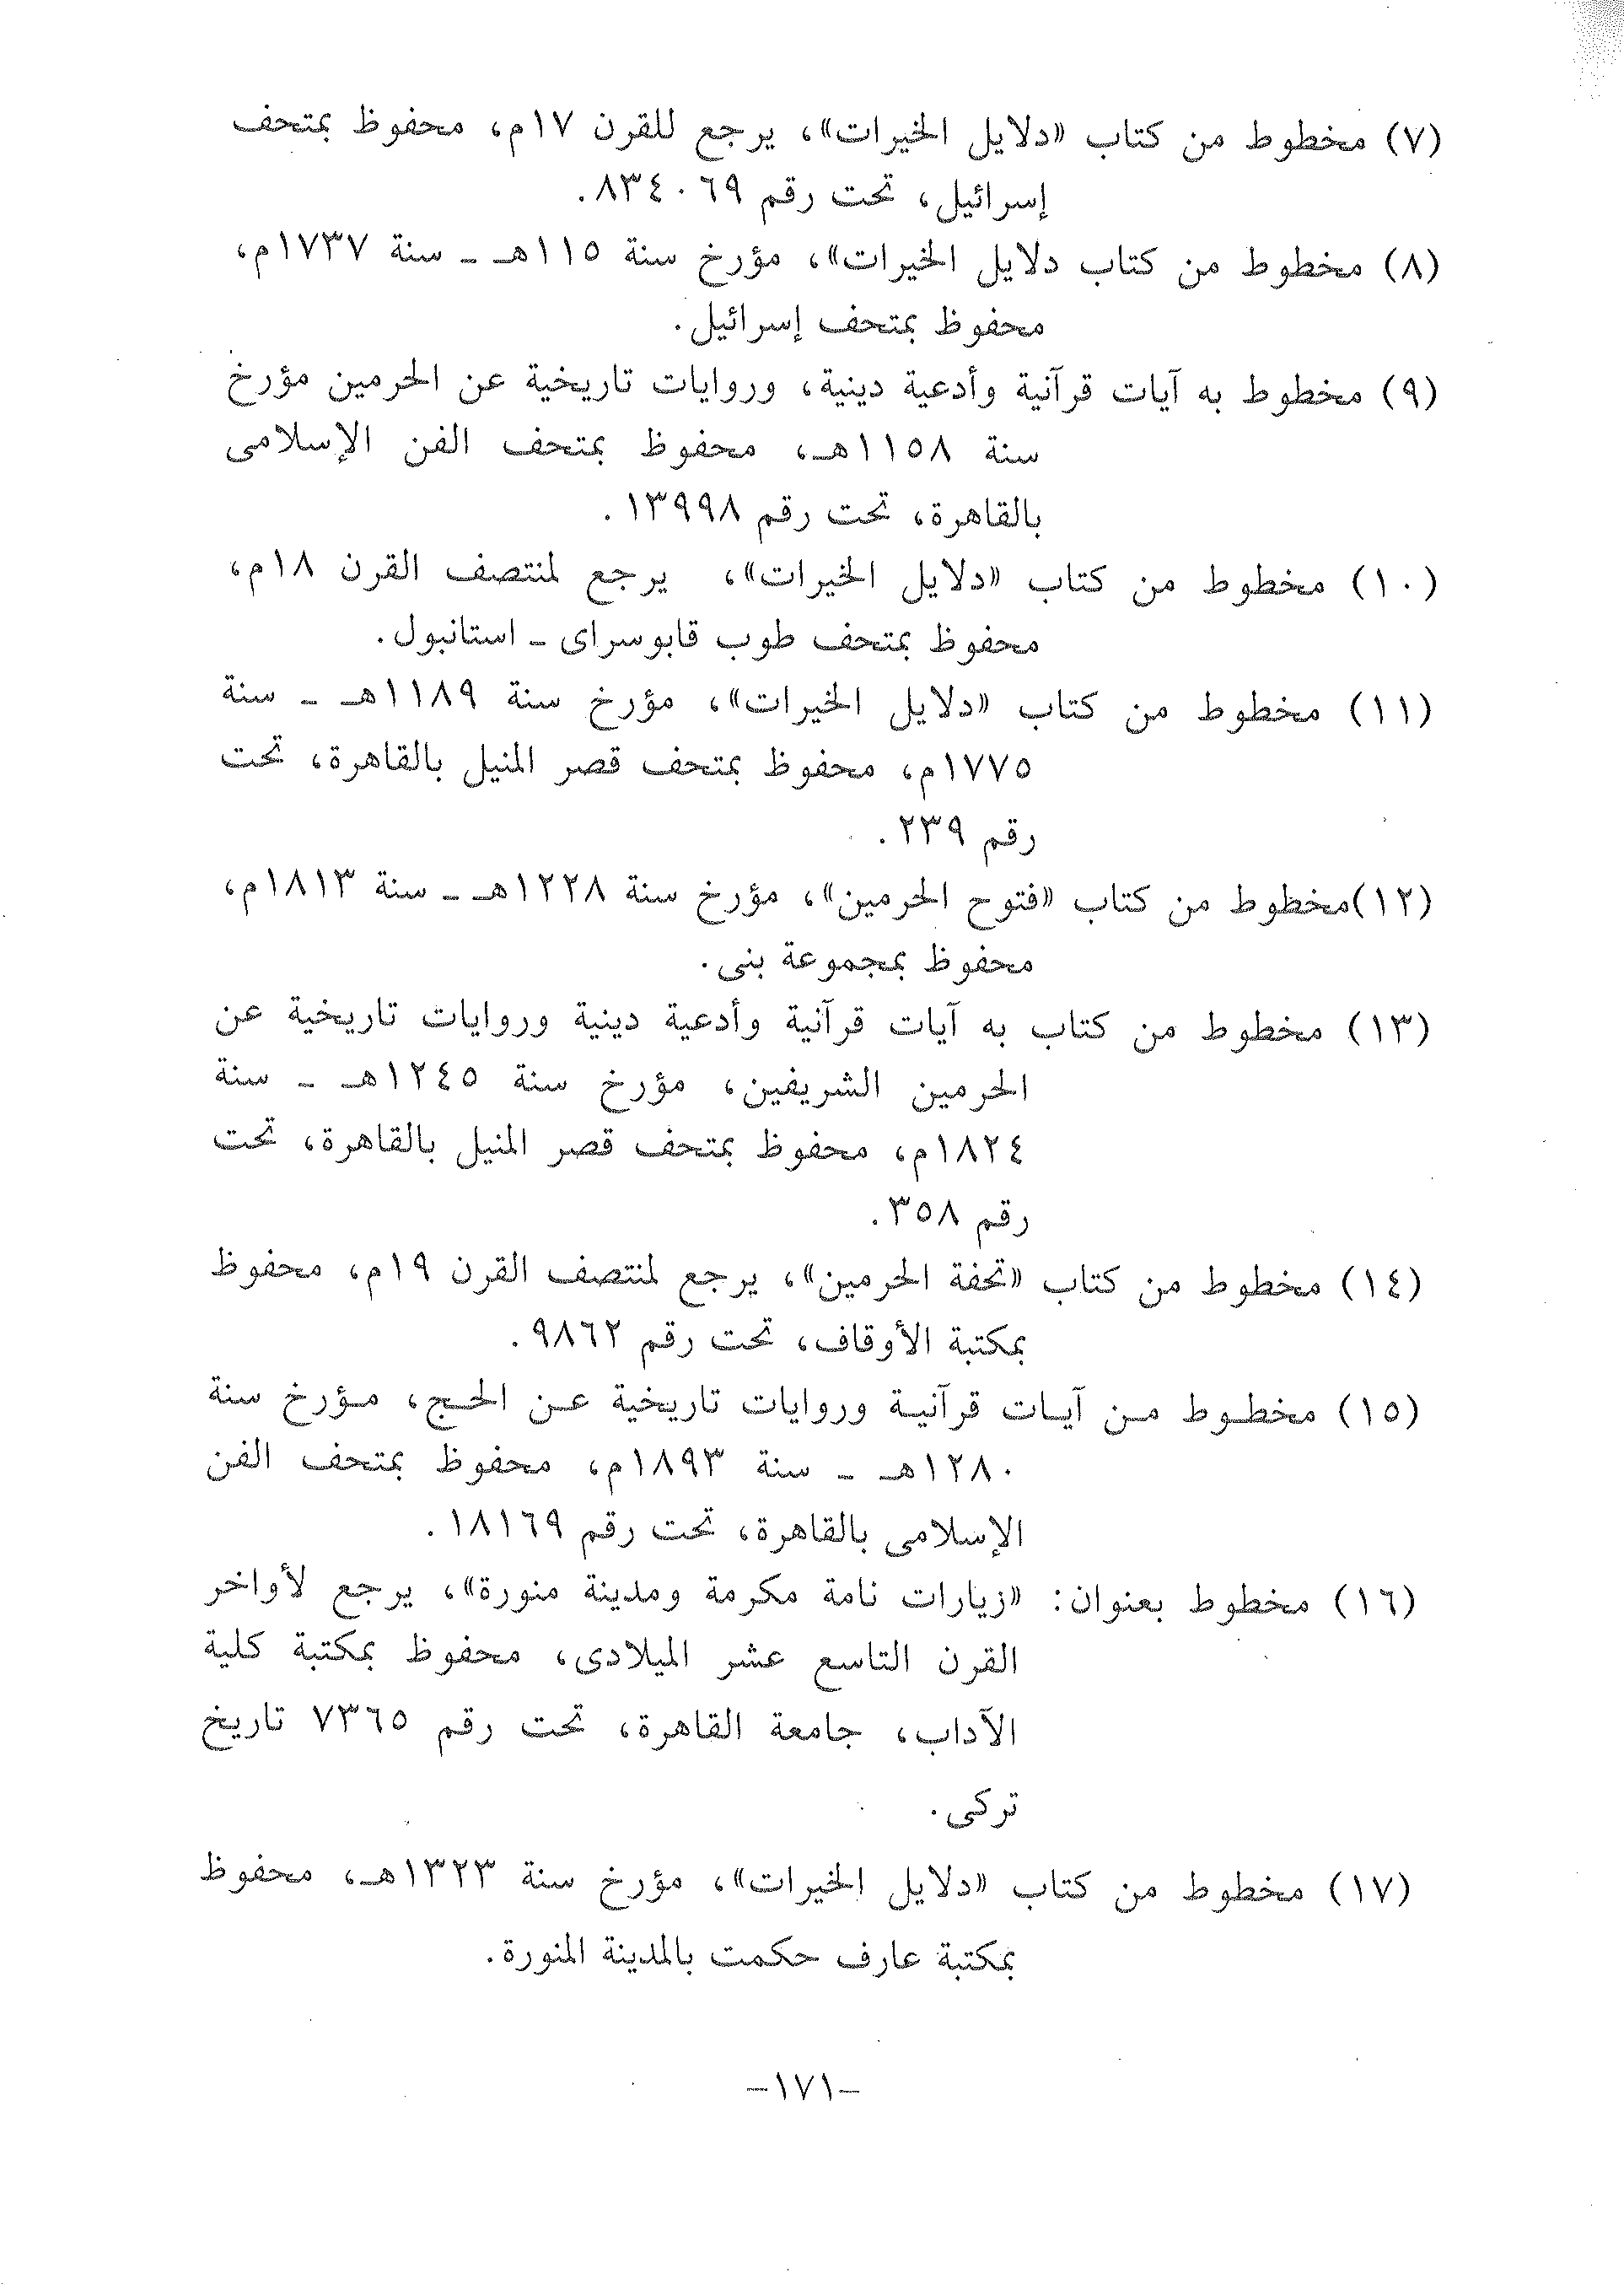 (٧) مخطوط من كتاب «دلايل الخيرات»، يرجع للقرن ١٧م، محفوظ بمتحف
إسرائيل، تحت رقم ٨٣٤٠٦٩.
(٨) مخطوط من كتاب دلايل الخيرات»، مؤرخ سنة ١١٥هـ ـ سنة ١٧٣٧م،
محفوظ بمتحف إسرائيل.
(٩) مخطوط به آيات قرآنية وأدعية دينية، وروايات تاريخية عن الحرمين مؤرخ
سنة ١١٥٨هـ، محفوظ بمتحف الفن الإسلامى
بالقاهرة، تحت رقم ١٣٩٩٨.
(١٠) مخطوط من كتاب «دلايل الخيرات»، يرجع لمنتصف القرن ١٨م،
محفوظ بمتحف طوب قابوسراى ـ استانبول.
(١١) مخطوط من كتاب «دلايل الخيرات»، مؤرخ سنة ١١٨٩هـ ـ سنة
١٧٧٥م، محفوظ بمتحف قصر المنيل بالقاهرة، تحت
رقم ٢٣٩.
(١٢)مخظوط من كتاب «فتوح الحرمين»، مؤرخ سنة ١٢٢٨هـ ـ سنة ١٨١٣م،
محفوظ بمجموعة بنى.
(١٣) مخطوط من كتاب به آيات قرآنية وأدعية دينية وروايات تاريخية عن
الحرمين الشريفين، مؤرخ سنة ١٢٤٥هـ ـ سنة
١٨٢٤م، محفوظ بمتحف قصر المنيل بالقاهرة، تحت
رقم ٣٥٨.
(١٤) مخطوط من كتاب «تحفة الحرمين»، يرجع لمنتصف القرن ١٩م، محفوظ
بمكتبة الأوقاف، تحت رقم ٩٨٦٢.
(١٥) مخطوط من آيات قرآنية وروايات تاريخية عن الحج، مؤرخ سنة
١٢٨٠هـ ـ سنة ١٨٩٣م، محفوظ بمتحف الفن
الإسلامى بالقاهرة، تحت رقم ١٨١٦٩.
(١٦) مخطوط بعنوان: «زيارات نامة مكرمة ومدينة منورة»، يرجع لأواخر
القرن التاسع عشر الميلادى، محفوظ بمكتبة كلية
الآداب، جامعة القاهرة، تحت رقم ٧٣٦٥ تاريخ
تركى.
(١٧) مخطوط من كتاب «دلايل الخيرات»، مؤرخ سنة ١٣٢٣هـ، محفوظ
بمكتبة عارف حكمت بالمدينة المنورة.
–١٧١–